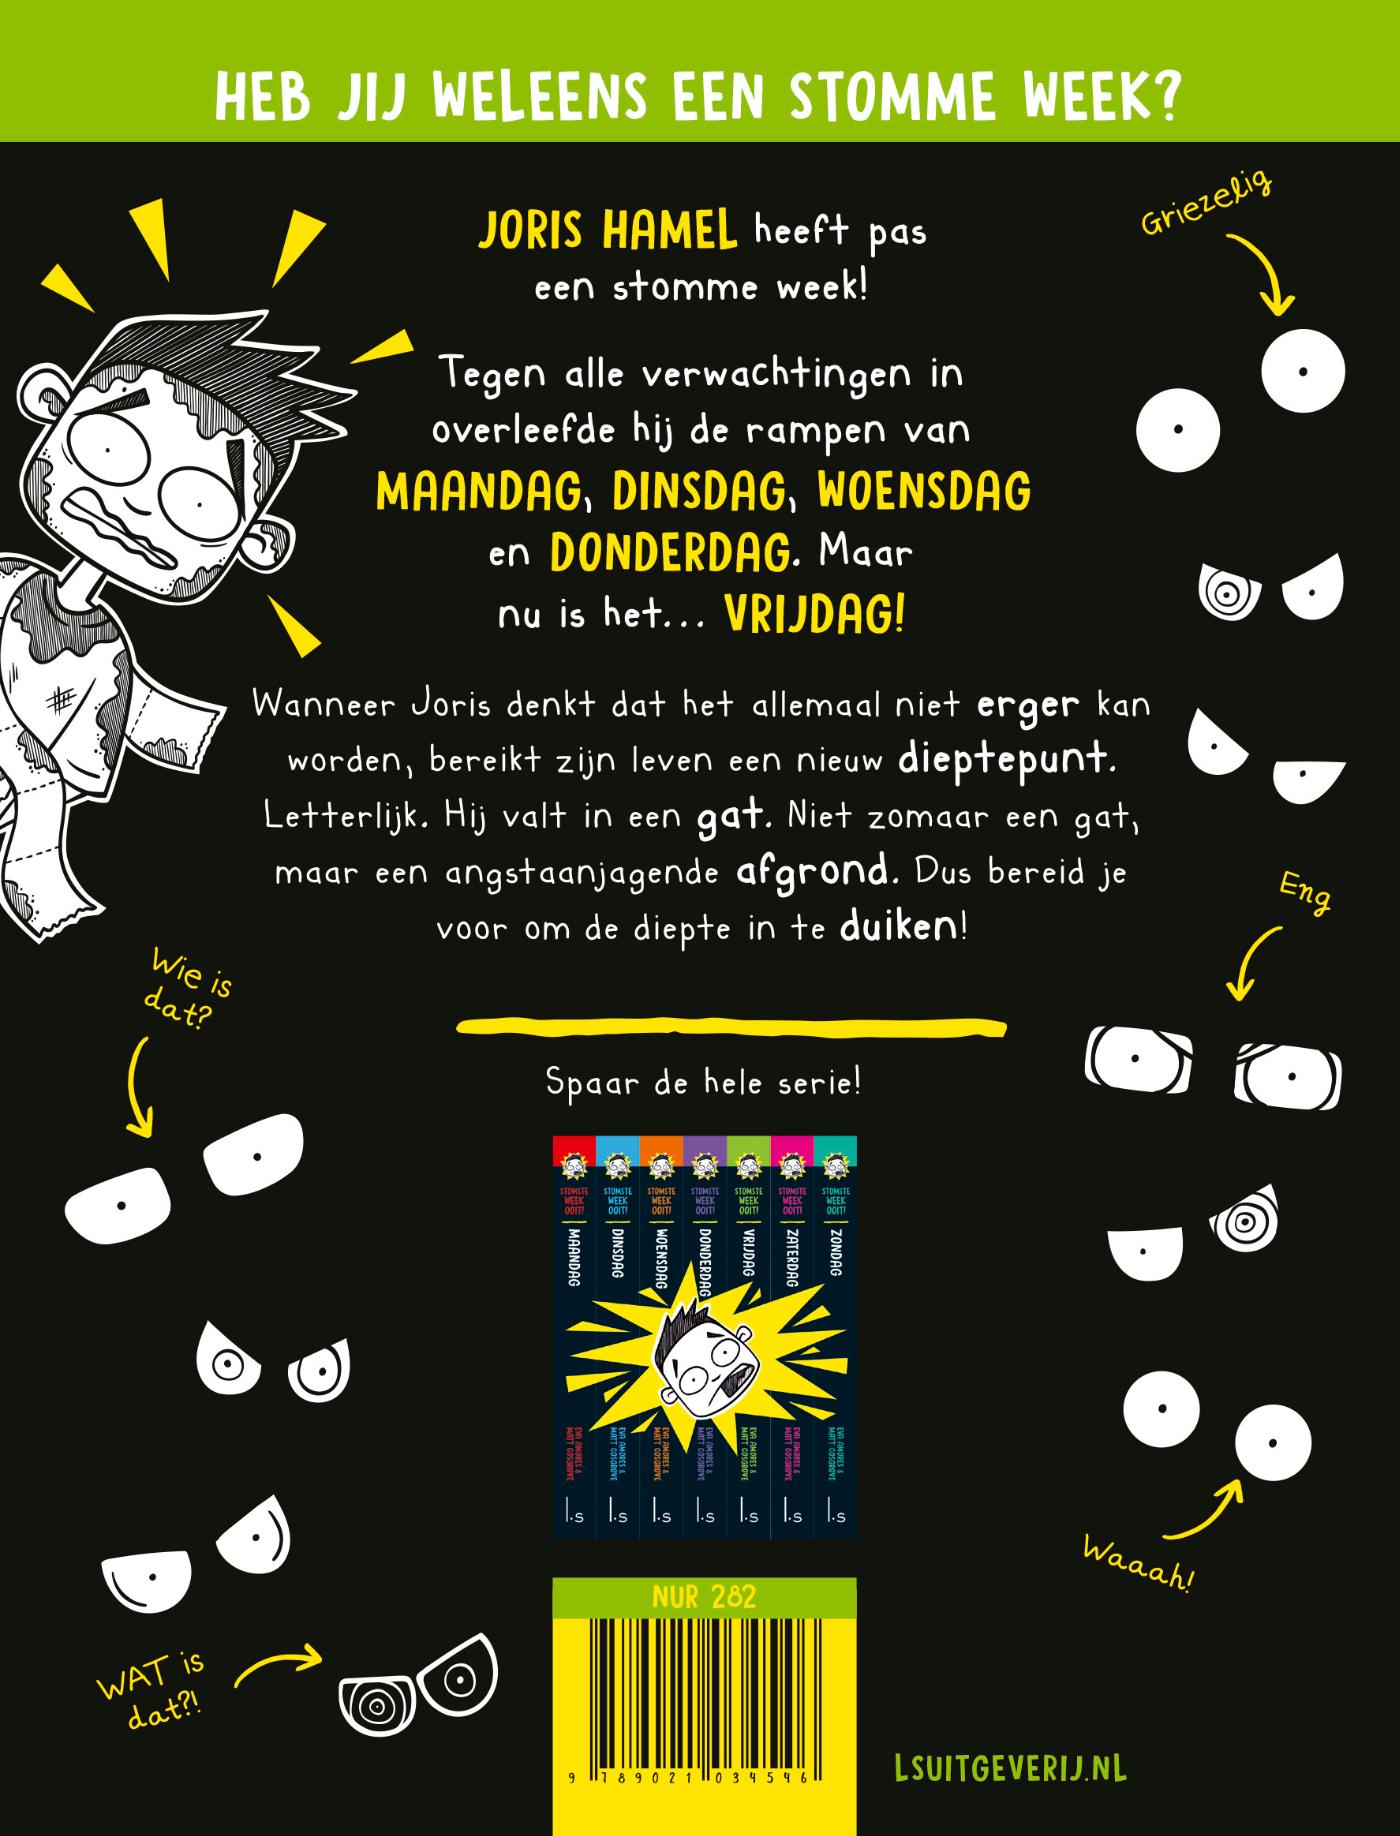 HEB JIJ WELEENS EEN STOMME WEEK?
Griezelig
JORIS HAMEL heeft pas
een stomme week!
Tegen alle verwachtingen in
overleefde hij de rampen van
MAANDAG, DINSDAG, WOENSDAG
en DONDERDAG. Maar
nu is het... VRIJDAG!
Wanneer Joris denkt dat het allemaal niet erger kan
worden, bereikt zijn leven een nieuw dieptepunt.
Letterlijk. Hij valt in een gat. Niet zomaar een gat,
maar een angstaanjagende afgrond. Dus bereid je
voor om de diepte in te duiken!
Eng
Wie is
dat?
Spaar de hele serie!
STOMSTE
WEEK
OOIT!
MAANDAG
EVA AMORES &
MATT COSGROVE
l.s
STOMSTE
WEEK
OOIT!
DINSDAG
EVA AMORES &
MATT COSGROVE
l.s
STOMSTE
WEEK
OOIT!
WOENSDAG
EVA AMORES &
MATT COSGROVE
l.s
STOMSTE
WEEK
OOIT!
DONDERDAG
EVA AMORES &
MATT COSGROVE
l.s
STOMSTE
WEEK
OOIT!
VRIJDAG
EVA AMORES &
MATT COSGROVE
l.s
STOMSTE
WEEK
OOIT!
ZATERDAG
EVA AMORES &
MATT COSGROVE
l.s
STOMSTE
WEEK
OOIT!
ZONDAG
EVA AMORES &
MATT COSGROVE
l.s
Waaah!
WAT is
dat?!
NUR 282
9 789021 034546
LSUITGEVERIJ.NL